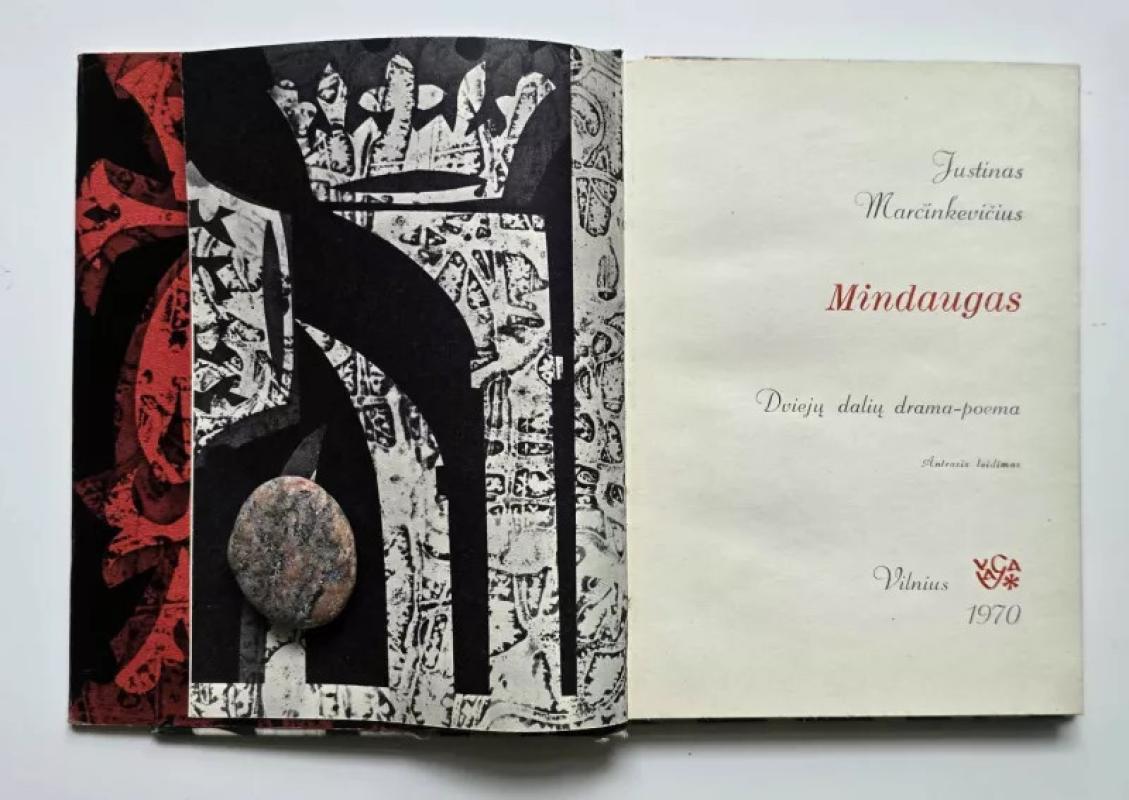 Justinas
Marcinkevičius
Mindaugas
Dviejų dalių drama-poema
Antrasis leidimas
Vilnius
VAGA
1970